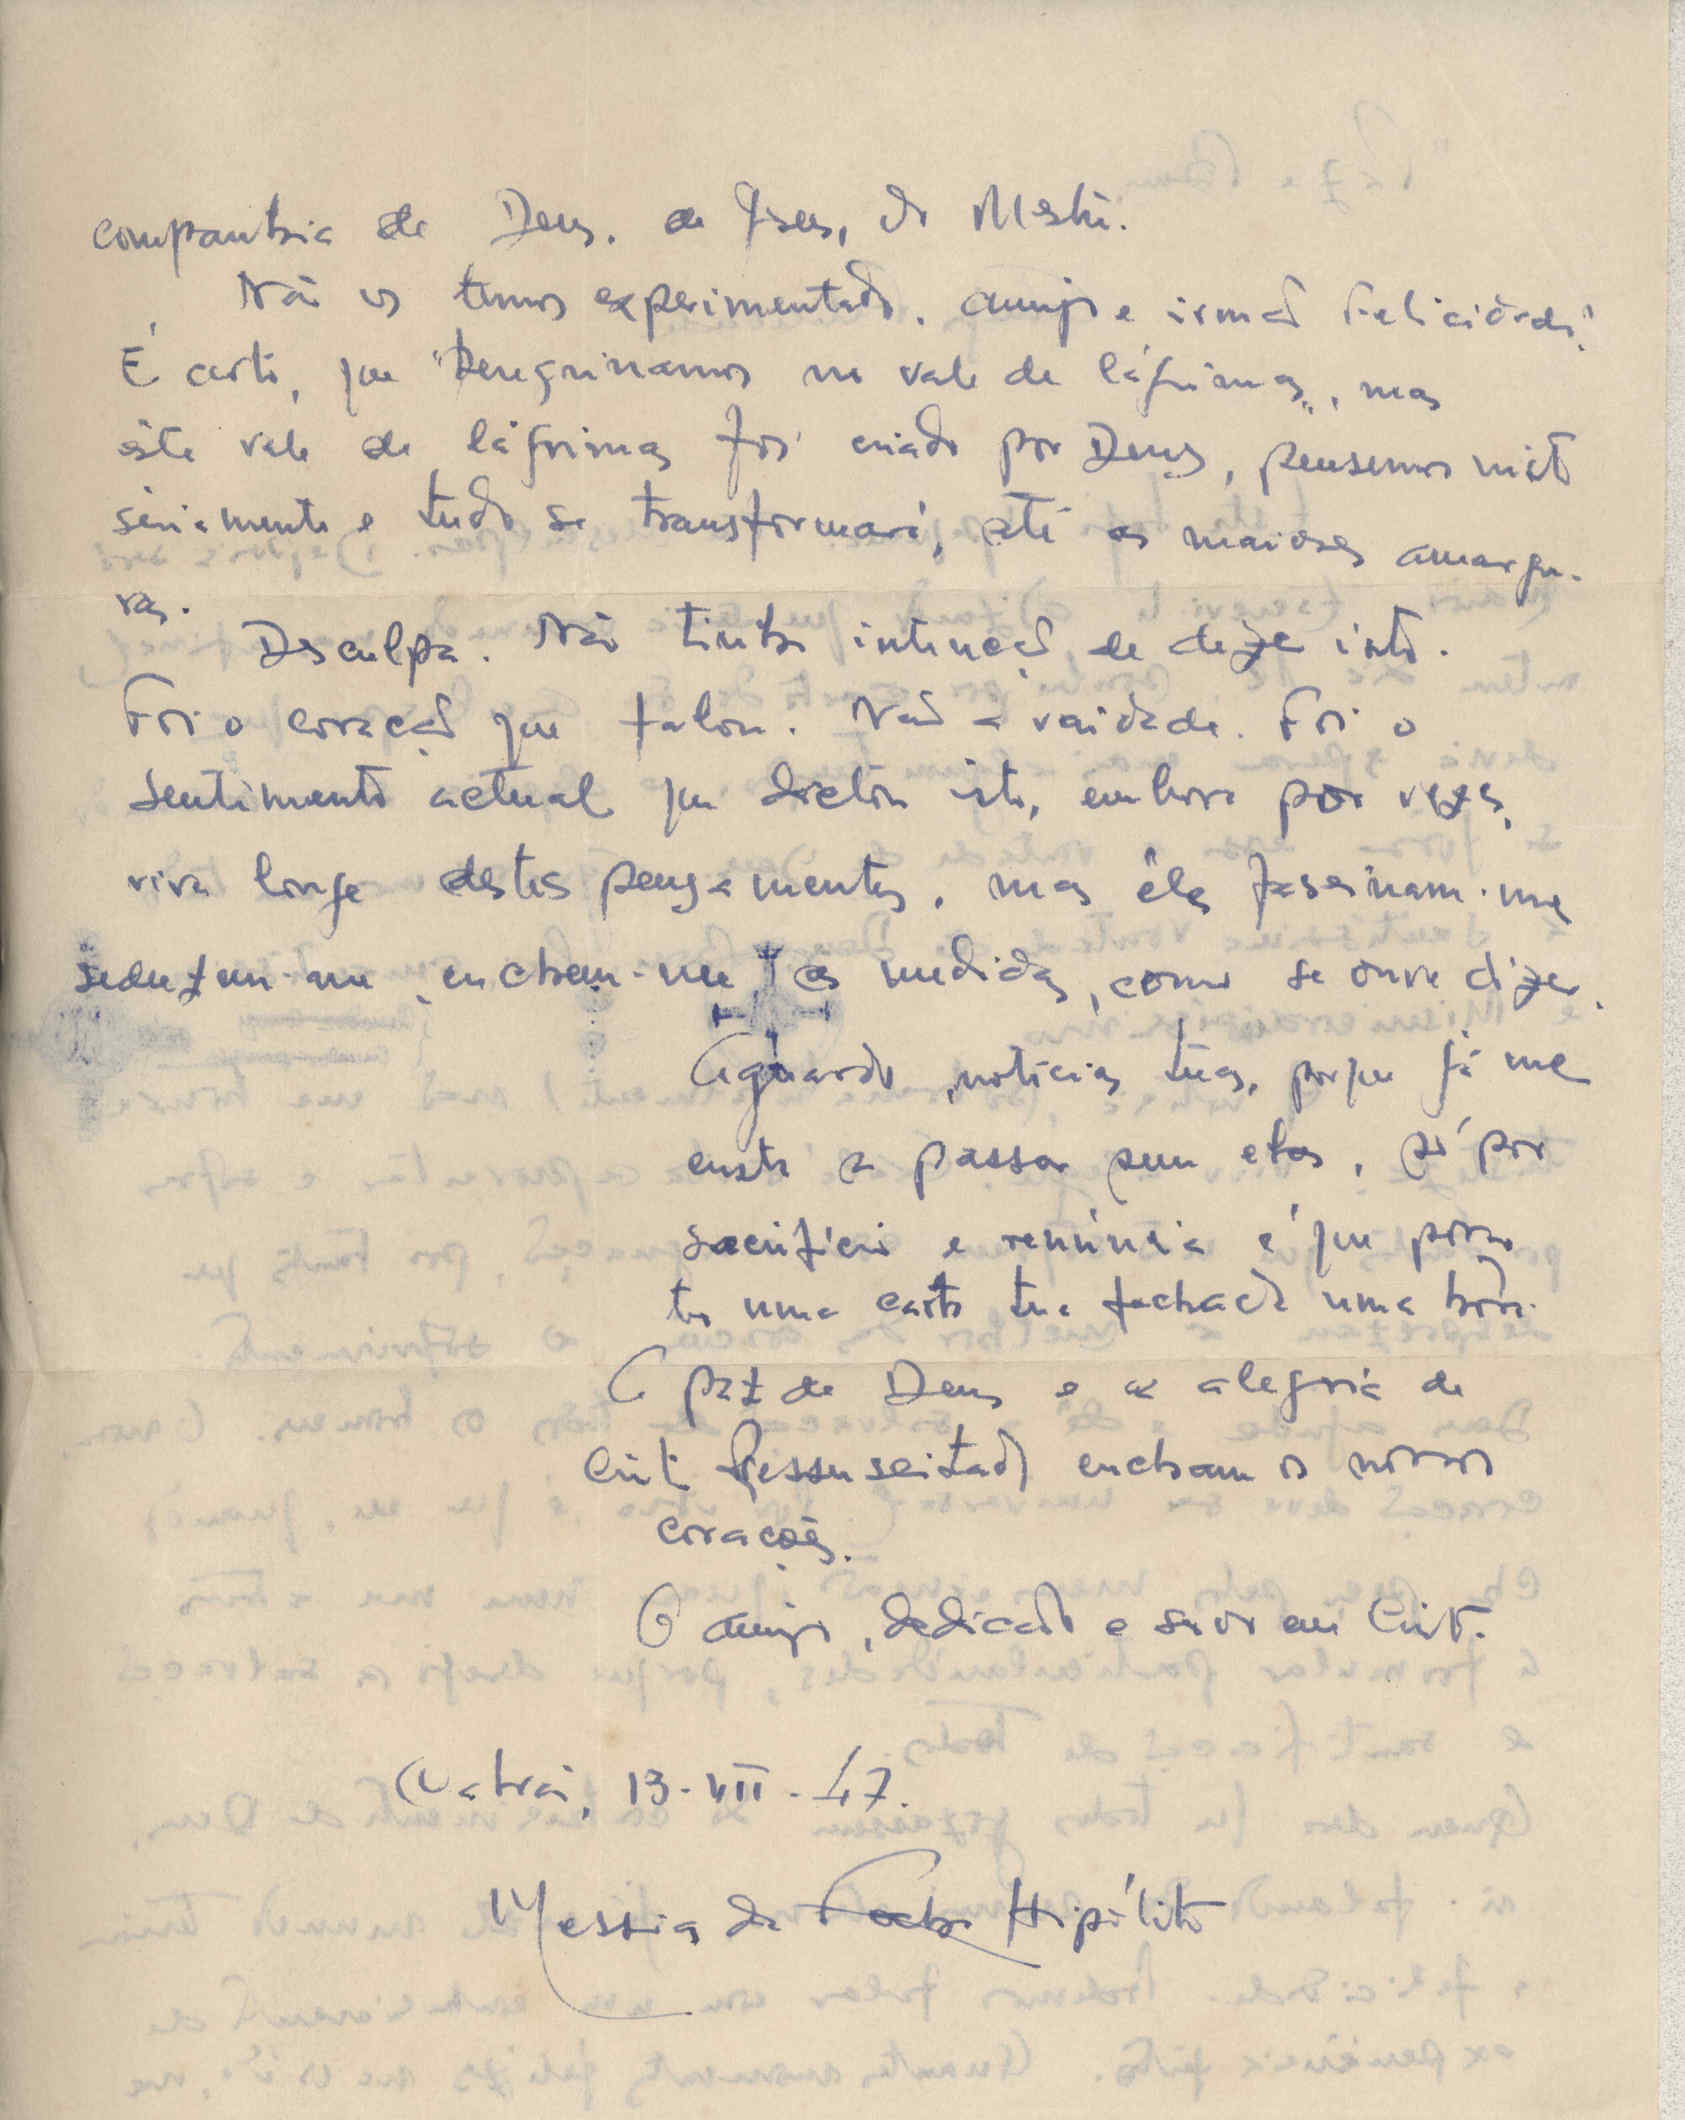 companhia de Deus. de Jesus, do Mestre.
Não os temos experimentado. amigo e irmão Felicidade!
É certo, que "Peregrinamos no vale de lágrimas", mas
êste vale de lágrimas foi criado por Deus, pensemos nisto
sèriamente e tudo se transformará, até as maiores amargu-
ras.
Desculpa. Não tinha intenção de dizer isto.
Foi o coração que falou. Não a vaidade. Foi o
sentimento actual que dictou isto, embora por vezes,
viva longe destes pensamentos, mas êles fascinam-me
seduzem-me, enchem-me as medidas, como se ouve dizer.
Aguardo, notícias tuas, porque já me
custa a passar sem elas, só por
sacrifício e renúncia é que posso
ter uma carta tua fechada uma hora.
A paz de Deus e a alegria de
Cristo Ressuscitado encham os nossos
corações.
O amigo, dedicado e servo em Cristo.
13-VII-47.
Messias da Hipólito